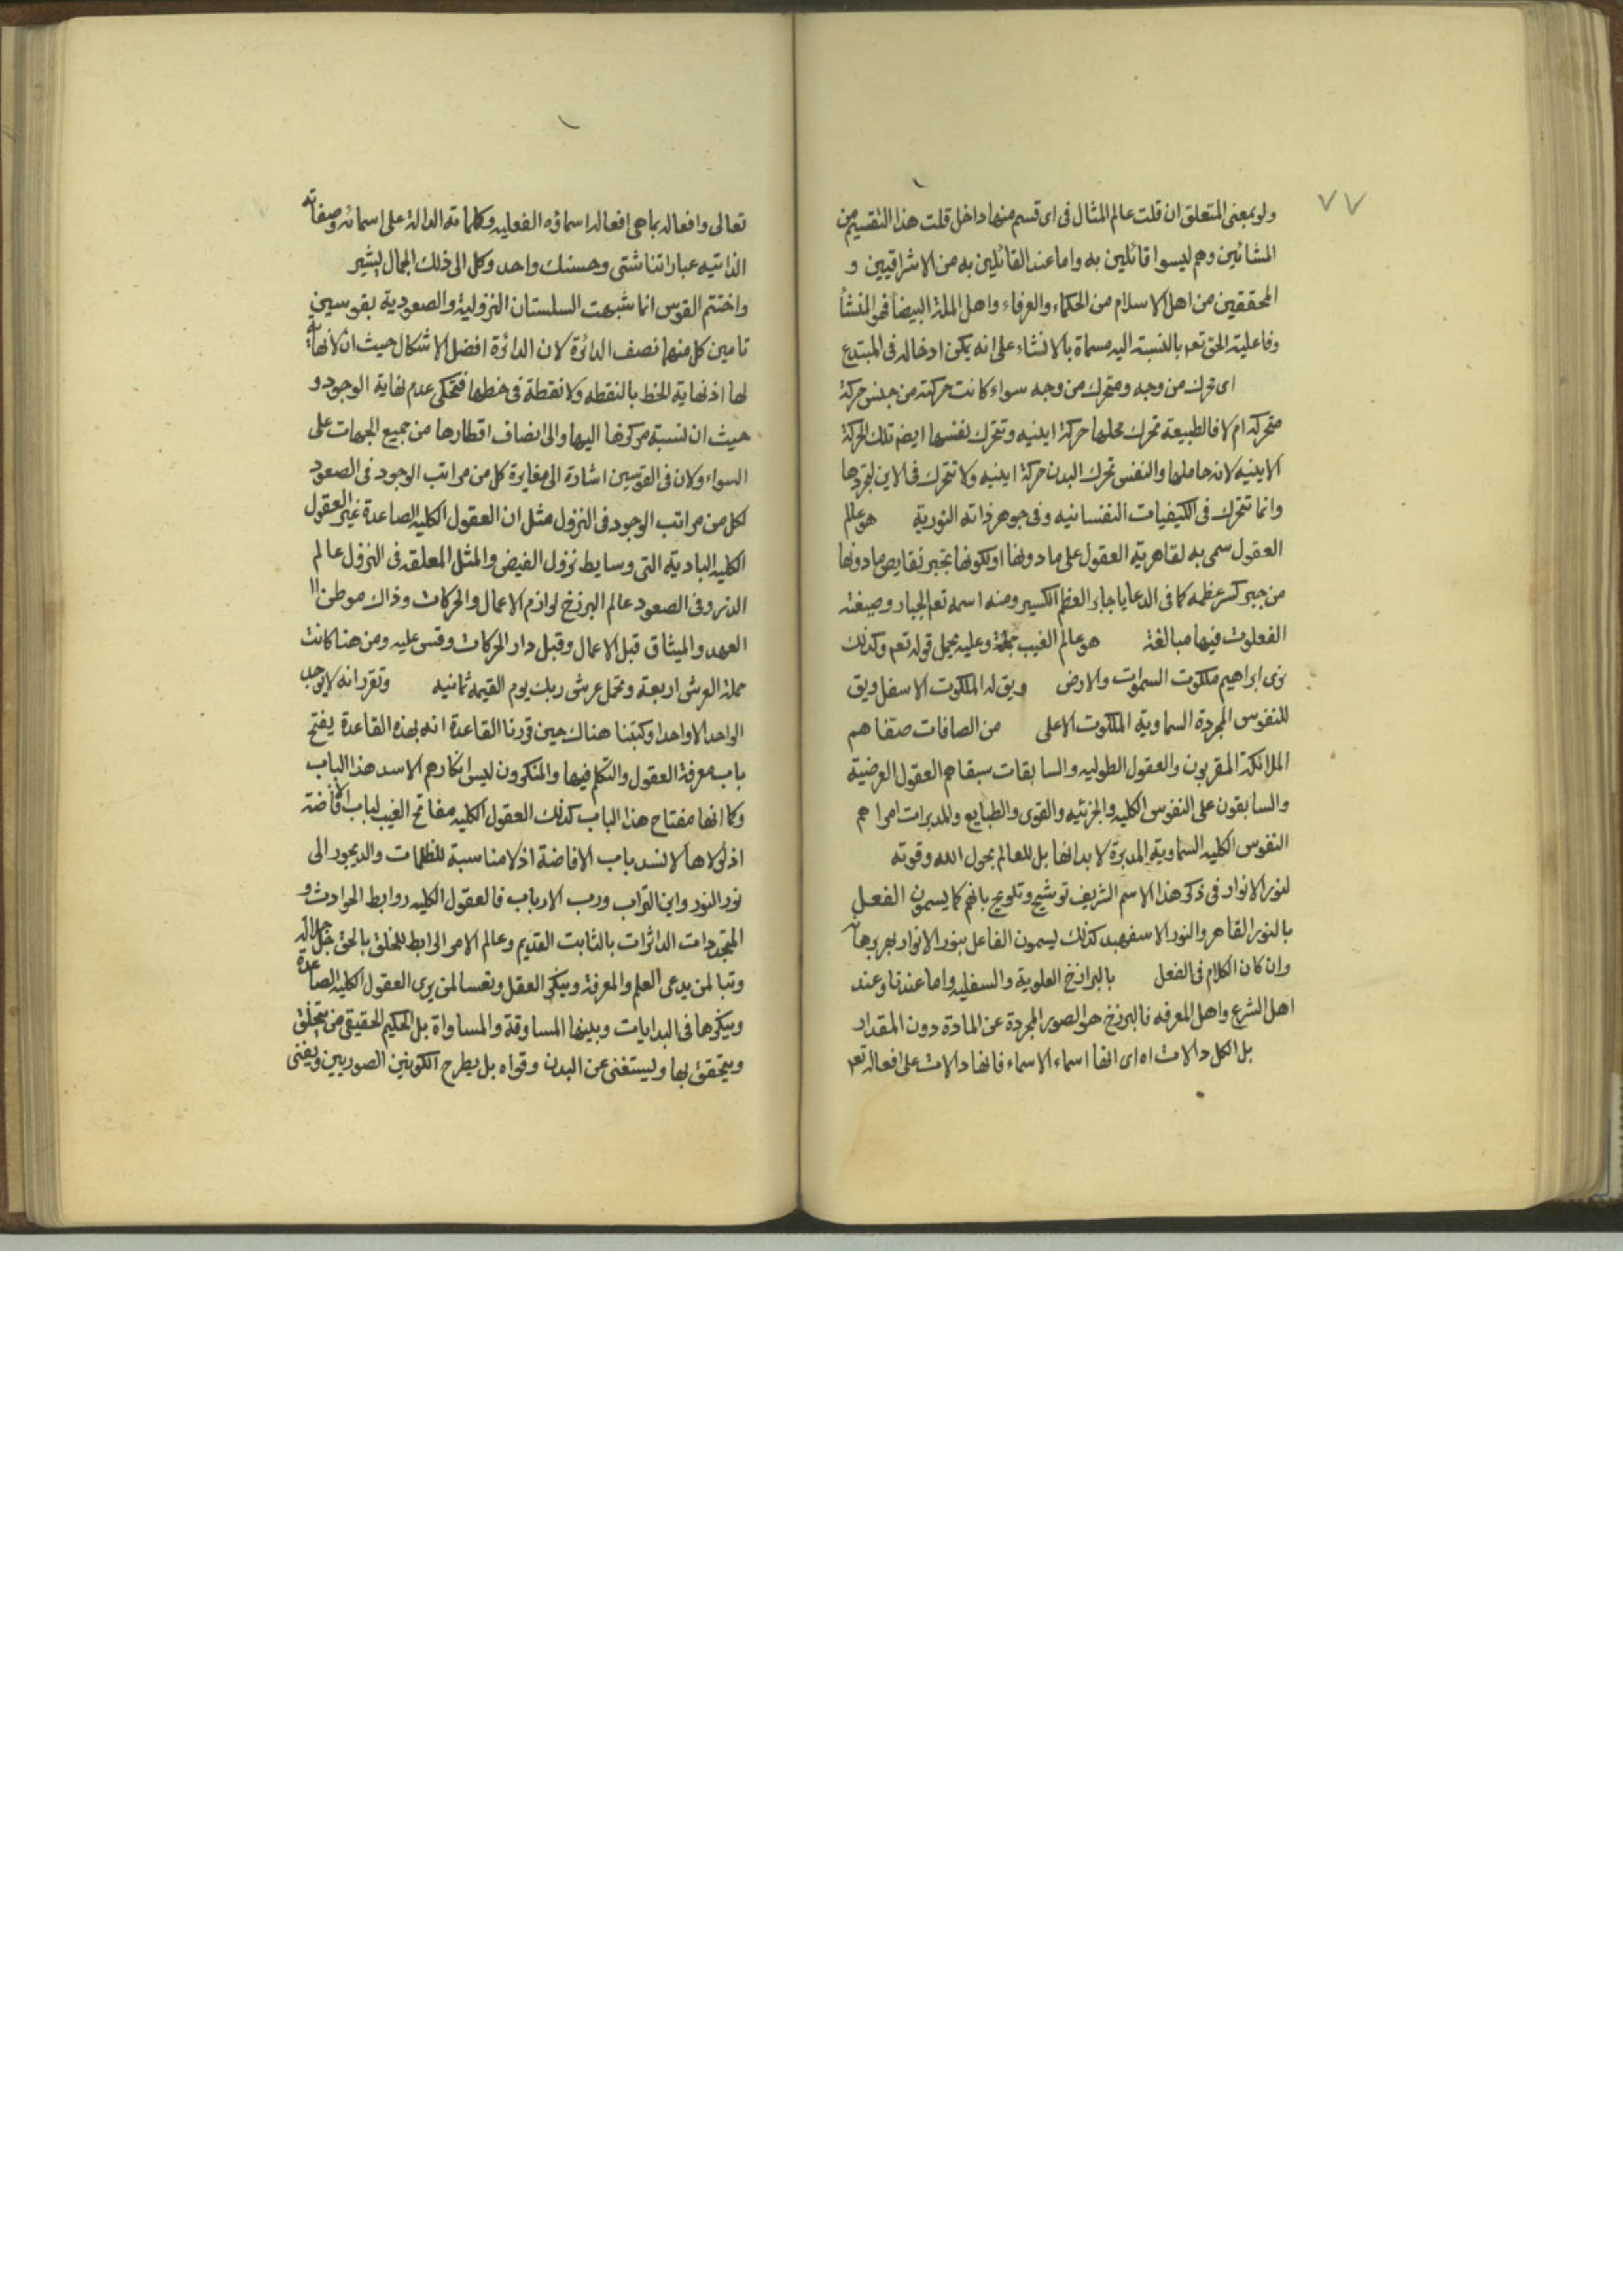 ٧٧
ولو بمعنى المتعلق ان قلت عالم المثال فى اى قسم منها داخل قلت هذا التقسيم من
المشائين وهم ليسوا قائلين به واما عند القائلين به من الاشراقيين و
المحققين من اهل الاسلام من الحكماء والعرفاء واهل الملة البيضاء فهو المنشأ
وفاعلية الحق تعم بالنسبة اليه مسماة بالانشاء على انه يمكن ادخاله فى المبتدع
اى محرك من وجه ومتحرك من وجه سواء كانت حركته من جنس حركة
متحركه ام لا فالطبيعة تحرك محلها حركة اينيه وتتحرك بنفسها ايضم تلك الحركة
الاينيه لانه حاملها والنفس تحرك البدن حركة اينيه ولا تتحرك فى الاين لتجردها
وانما تتحرك فى الكيفيات النفسانيه وفى جوهر ذاته النورية هو عالم
العقول سمى به لقاهرية العقول على ما دونها او لكونها تجبر نقايص ما دونها
من جبر كسر عظمه كما فى الدعا يا جابر العظم الكسير ومنه اسمه تعم الجبار وصيغة
الفعلوت فيها مبالغة هو عالم الغيب جملة وعليه يحمل قوله تعم وكذلك
نرى ابراهيم ملكوت السموات والارض ويق له الملكوت الاسفل ويق
للنفوس المجردة السماوية الملكوت الاعلى من الصافات صفا هم
الملائكة المقربون والعقول الطوليه والسابقات سبقا هم العقول العرضية
والسابقون على النفوس الكليه والجزئيه والقوى والطبايع والمدبرات امرا هم
النفوس الكليه السماوية المدبرة لابدانها بل للعالم بحول الله وقوته
لنور الانوار فى ذكر هذا الاسم الشريف توشيح وتلويح بانهم كما يسمون الفعل
بالنور القاهر والنور الاسفهبد كذلك يسمون الفاعل بنور الانوار بهر برهانه
وان كان الكلام فى الفعل بالبرازخ العلوية والسفليه واما عندنا وعند
اهل الشرع واهل المعرفه فالبرزخ هو الصور المجردة عن المادة دون المقدار
بل الكل دالات اه اى انها اسماء الاسماء فانها دالات على افعاله تعم
تعالى وافعاله بما هى افعاله اسماؤه الفعليه وكلماته الدالة على اسمائه وصفاته
الذاتيه عباراتنا شتى وحسنك واحد وكل الى ذلك الجمال يشير
واختتم القوس انما شبهت السلسلتان النزولية والصعودية بقوسين
تامين كل منهما نصف الدائرة لان الدائرة افضل الاشكال حيث ان لا نهاية
لها اذ نهاية الخط بالنقطه ولا نقطة فى خطها فتحكى عدم نهاية الوجود و
حيث ان نسبة مركزها اليها والى انصاف اقطارها من جميع الجهات على
السواء ولان فى القوسين اشارة الى مغايرة كل من مراتب الوجود فى الصعود
لكل من مراتب الوجود فى النزول مثل ان العقول الكليه الصاعدة غير العقول
الكليه البادية التى وسايط نزول الفيض والمثل المعلقه فى النزول عالم
الذر وفى الصعود عالم البرزخ لوازم الاعمال والحركات وذاك موطن
العهد والميثاق قبل الاعمال وقبل دار الحركات وقس عليه ومن هنا كانت
حملة العرش اربعة ويحمل عرش ربك يوم القيمه ثمانيه وتقرر انه لا يوجد
الواحد الا واحدا وكتبنا هناك حين قررنا القاعدة انه بهذه القاعدة يفتح
باب معرفة العقول والتكلم فيها والمنكرون ليس انكارهم الا سد هذا الباب
وكما انها مفتاح هذا الباب كذلك العقول الكليه مفاتح الغيب لباب الافاضة
اذ لولاها لانسد باب الافاضة اذ لا مناسبة للظلمات والديجور الى
نور النور واين التراب ورب الارباب فالعقول الكليه روابط الحوادث و
المتجددات الداثرات بالثابت القديم وعالم الامر الرابط للخلق بالحق جل جلاله
وتبا لمن يدعى العلم والمعرفة وينكر العقل وتعسا لمن يرى العقول الكليه الصاعدة
وينكرها فى البدايات وبينها المساوقة والمساواة بل الحكيم الحقيقى من يتخلق
ويتحقق بها وليستغنى عن البدن وقواه بل يطرح الكونين الصوريين ويفنى